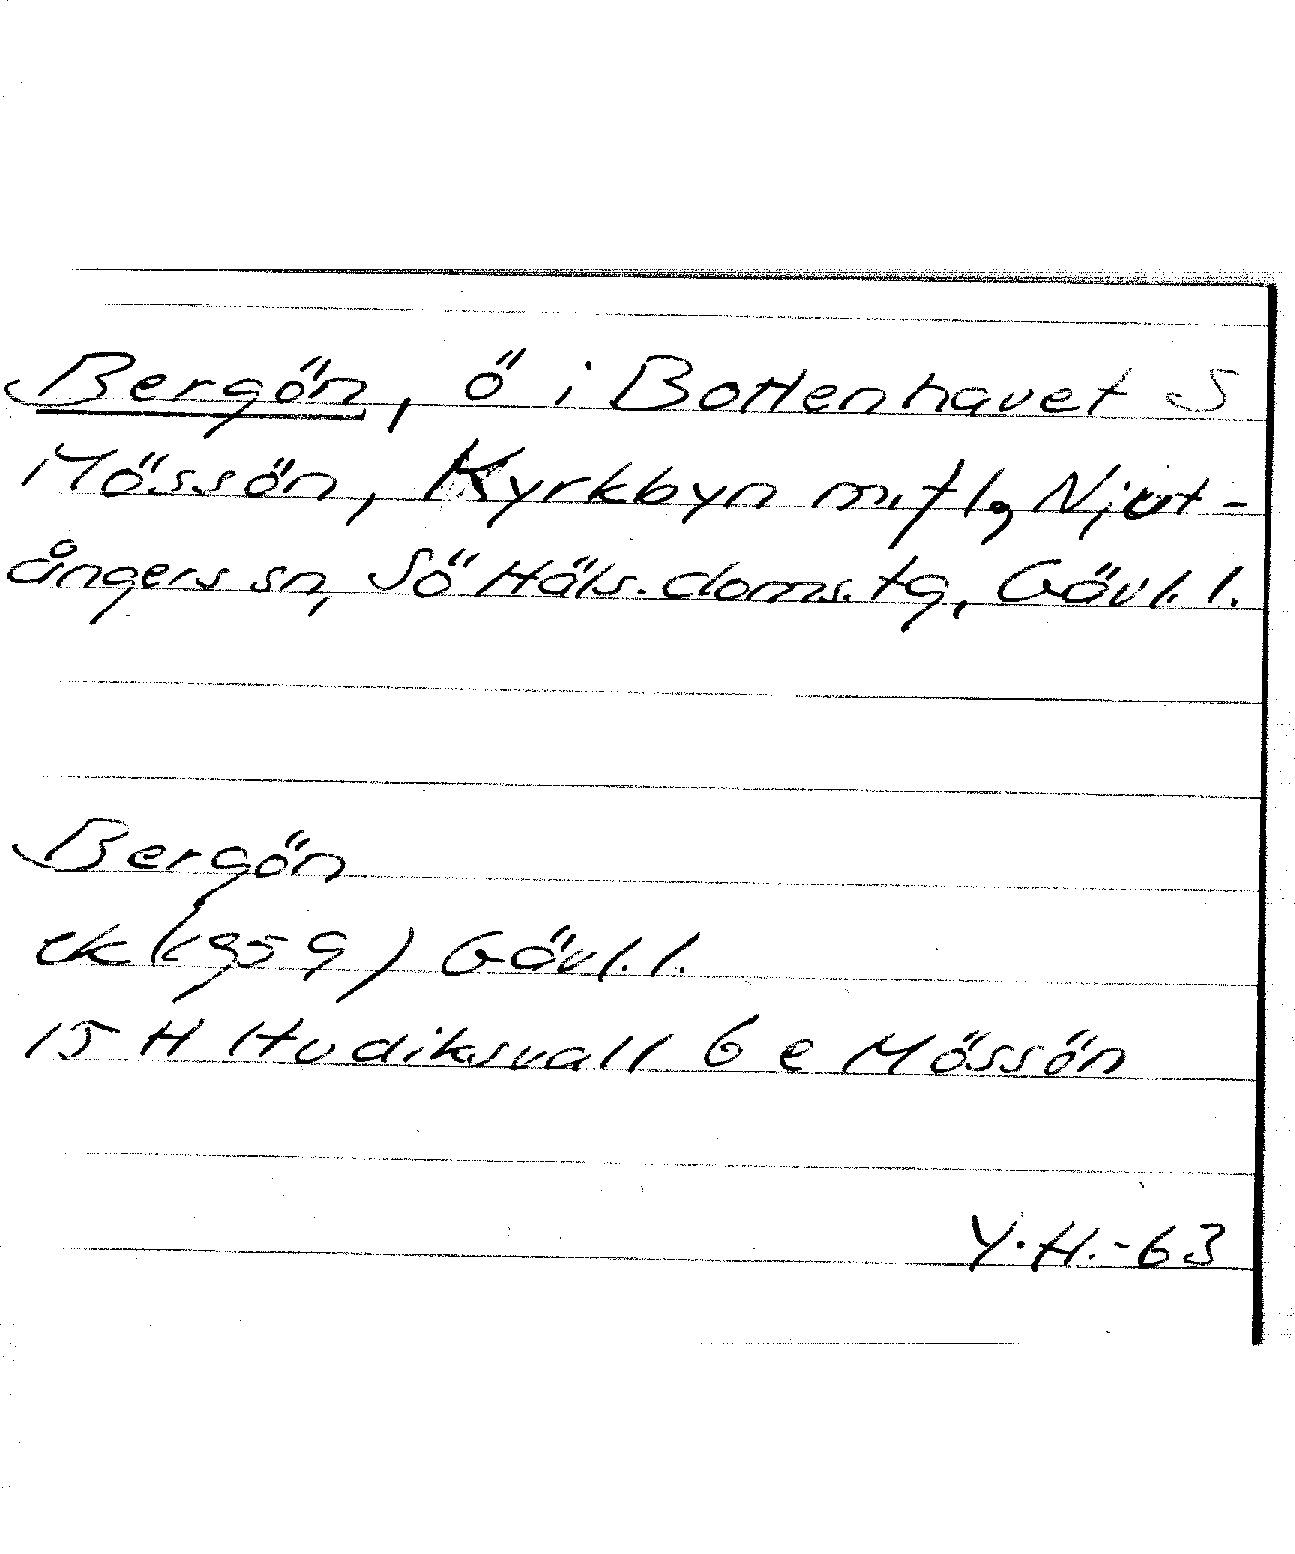 Bergön, ö i Bottenhavet S
Mössön, Kyrkbyn m.fl., Njut-
ångers sn, Sö Häls. doms. tg, Gävl. l.
Bergön
ek (1959) Gävl. l.
15 H Hudiksvall 6 e Mössön
Y.H.-63